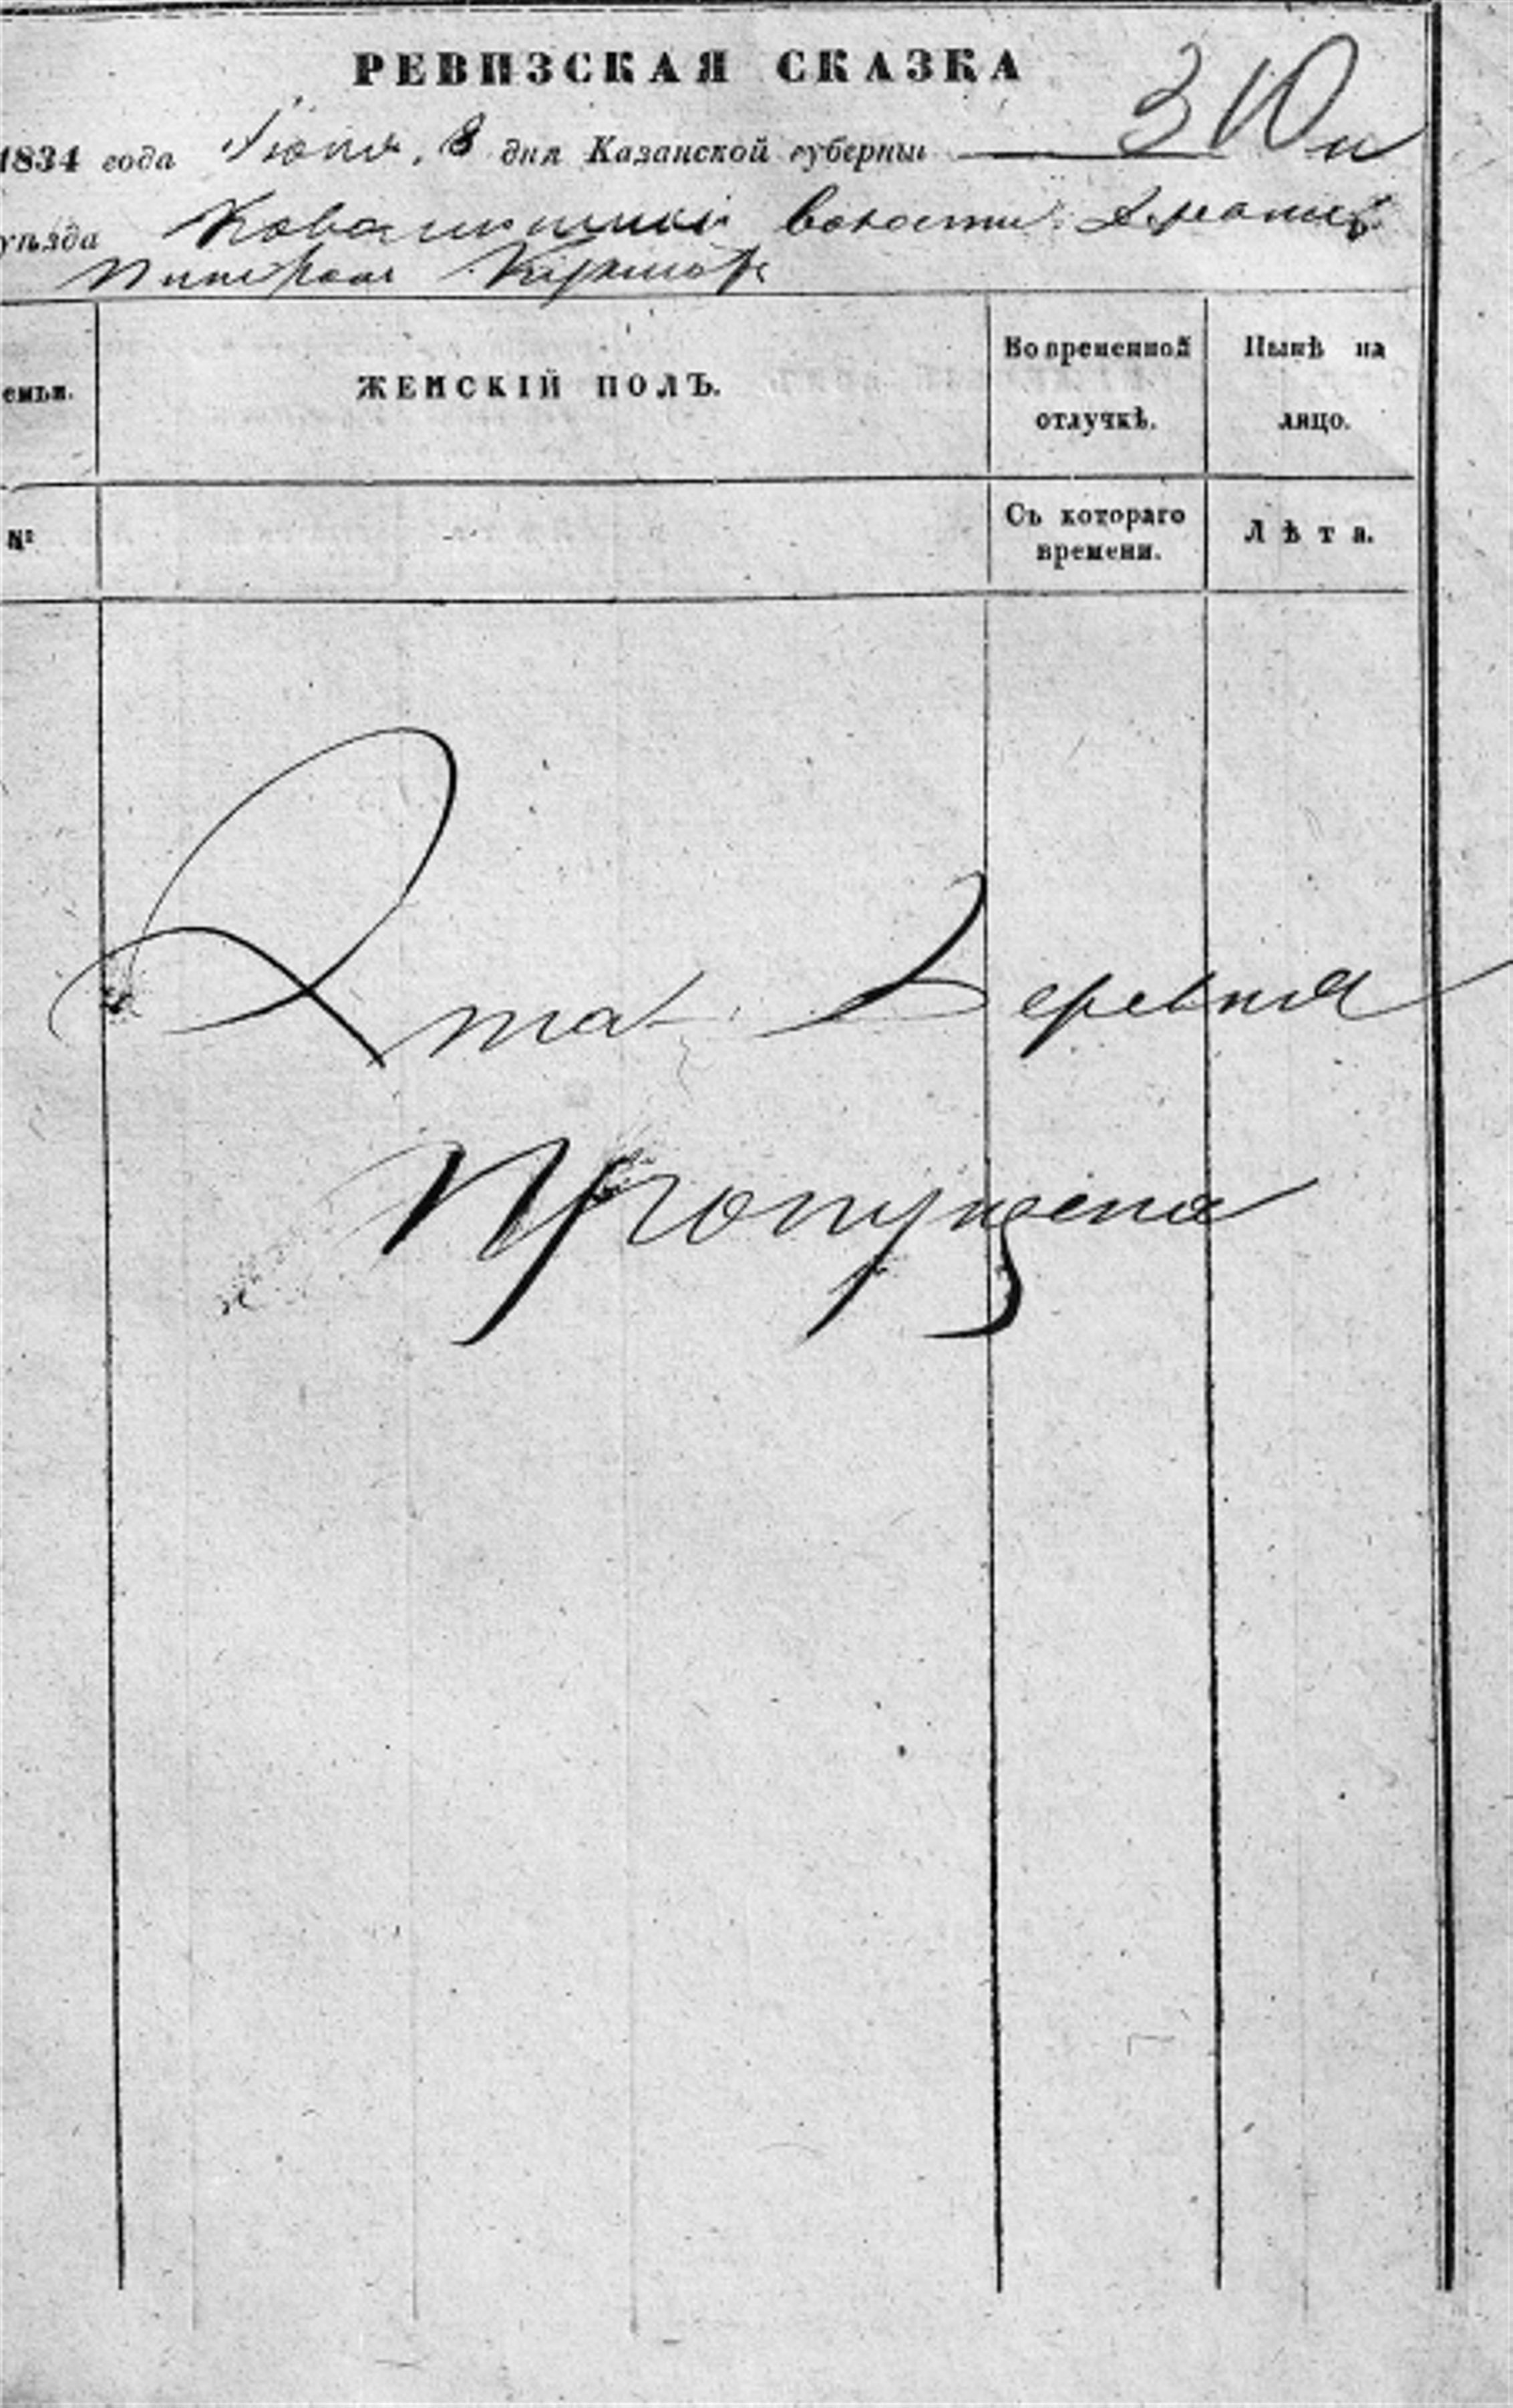 РЕВИЗСКАЯ СКАЗКА
1834 года Июня 8 дня Казанской губерніи
уѣзда волости
емьи.
ЖЕНСКІЙ ПОЛЪ.
Во временной отлучкѣ.
Нынѣ на лицо.
№
Съ котораго времени.
Лѣта.
Эта Деревня
Пропущена